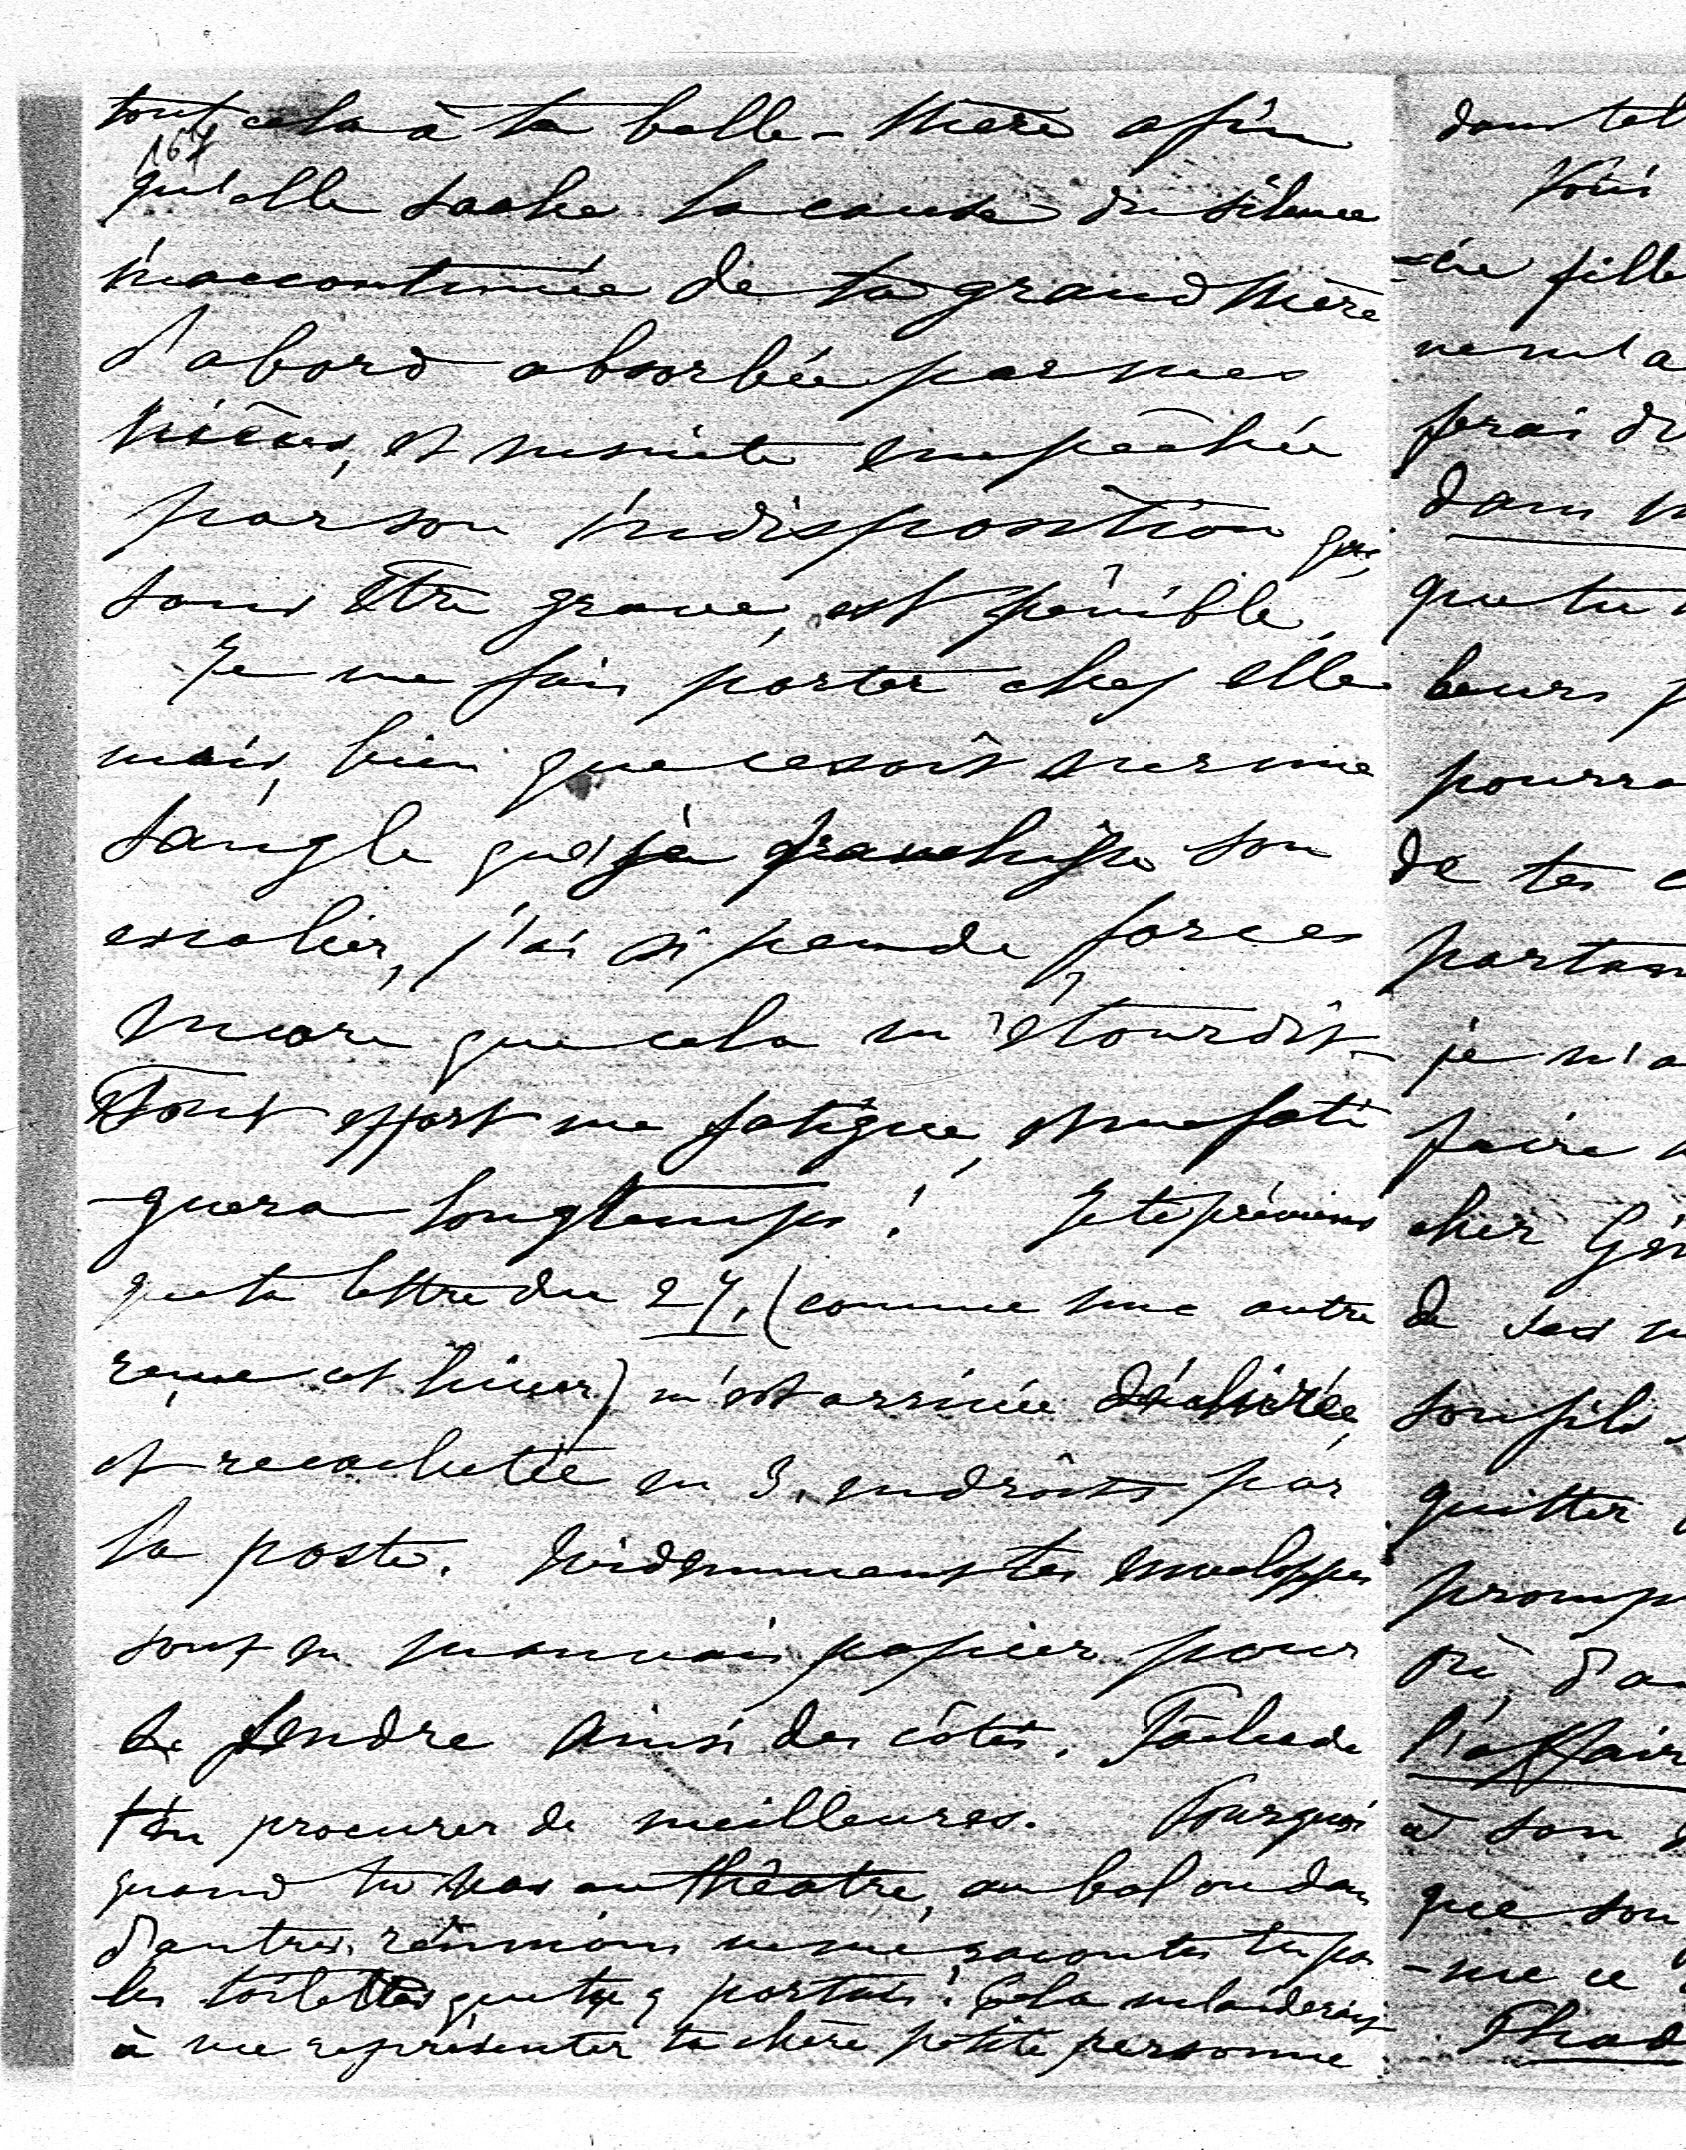 tout cela à ta belle-Mère afin
167
qu'elle sache la cause du silence
inaccoutumée de ta grand Mère
d'abord absorbée par mes
nièces, et ensuite empêchée
par son indisposition qui,
sans être grave, est pénible.
Je me fais porter chez elle
mais, bien que ce soit
que je franchisse son
escalier, j'ai si peu de forces
encore que cela m'étourdit.
Tout effort me fatigue, et me fati
-guera longtemps! Je te préviens
que ta lettre du 27. (comme une autre
reçue cet hiver) m'est arrivée déchirée,
et recachetée en 3. endroits par
la poste. Évidemment tes enveloppes
sont en mauvais papier pour
se fendre ainsi des côtés. Tâche de
t'en procurer de meilleures. Pourquoi
quand tu vas au théâtre, au bal ou dans
d'autres réunions ne me racontes tu pas
les toilettes que tu y portais? Cela m'aiderait
à me représenter ta chère petite personne
dans tel
Vois
-ère fille
ment a
ferai di
dans
que tu
leurs p
pourra
de tes c
partan
je n'a
faire
cher Gén
de ses
son fils
quitter
promp
où, d'a
l'affair
à son
que son
-me ce
Thad